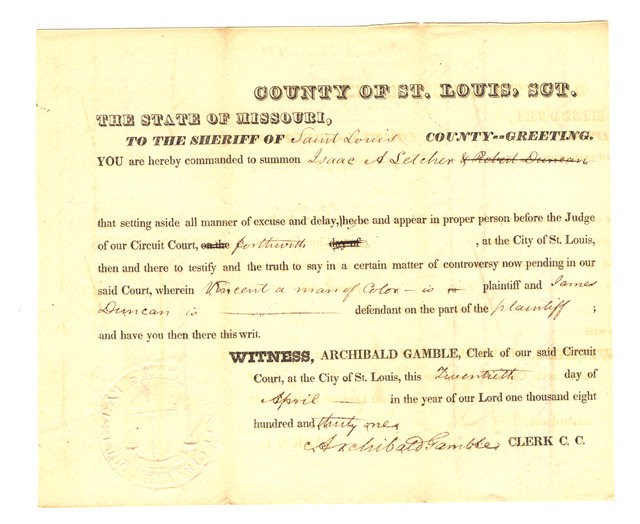 COUNTY OF ST. LOUIS, SCT.
THE STATE OF MISSOURI,
TO THE SHERIFF OF Saint Louis COUNTY--GREETING.
YOU are hereby commanded to summon Isaac A Letcher & Robert Duncan
that setting aside all manner of excuse and delay, he be and appear in proper person before the Judge
of our Circuit Court, on the forthwith day of , at the City of St. Louis,
then and there to testify and the truth to say in a certain matter of controversy now pending in our
said Court, wherein Vincent a man of Color - is plaintiff and James
Duncan is defendant on the part of the plaintiff ;
and have you then there this writ.
WITNESS, ARCHIBALD GAMBLE, Clerk of our said Circuit
Court, at the City of St. Louis, this Twentieth day of
April in the year of our Lord one thousand eight
hundred and thirty one
Archibald Gamble CLERK C. C.